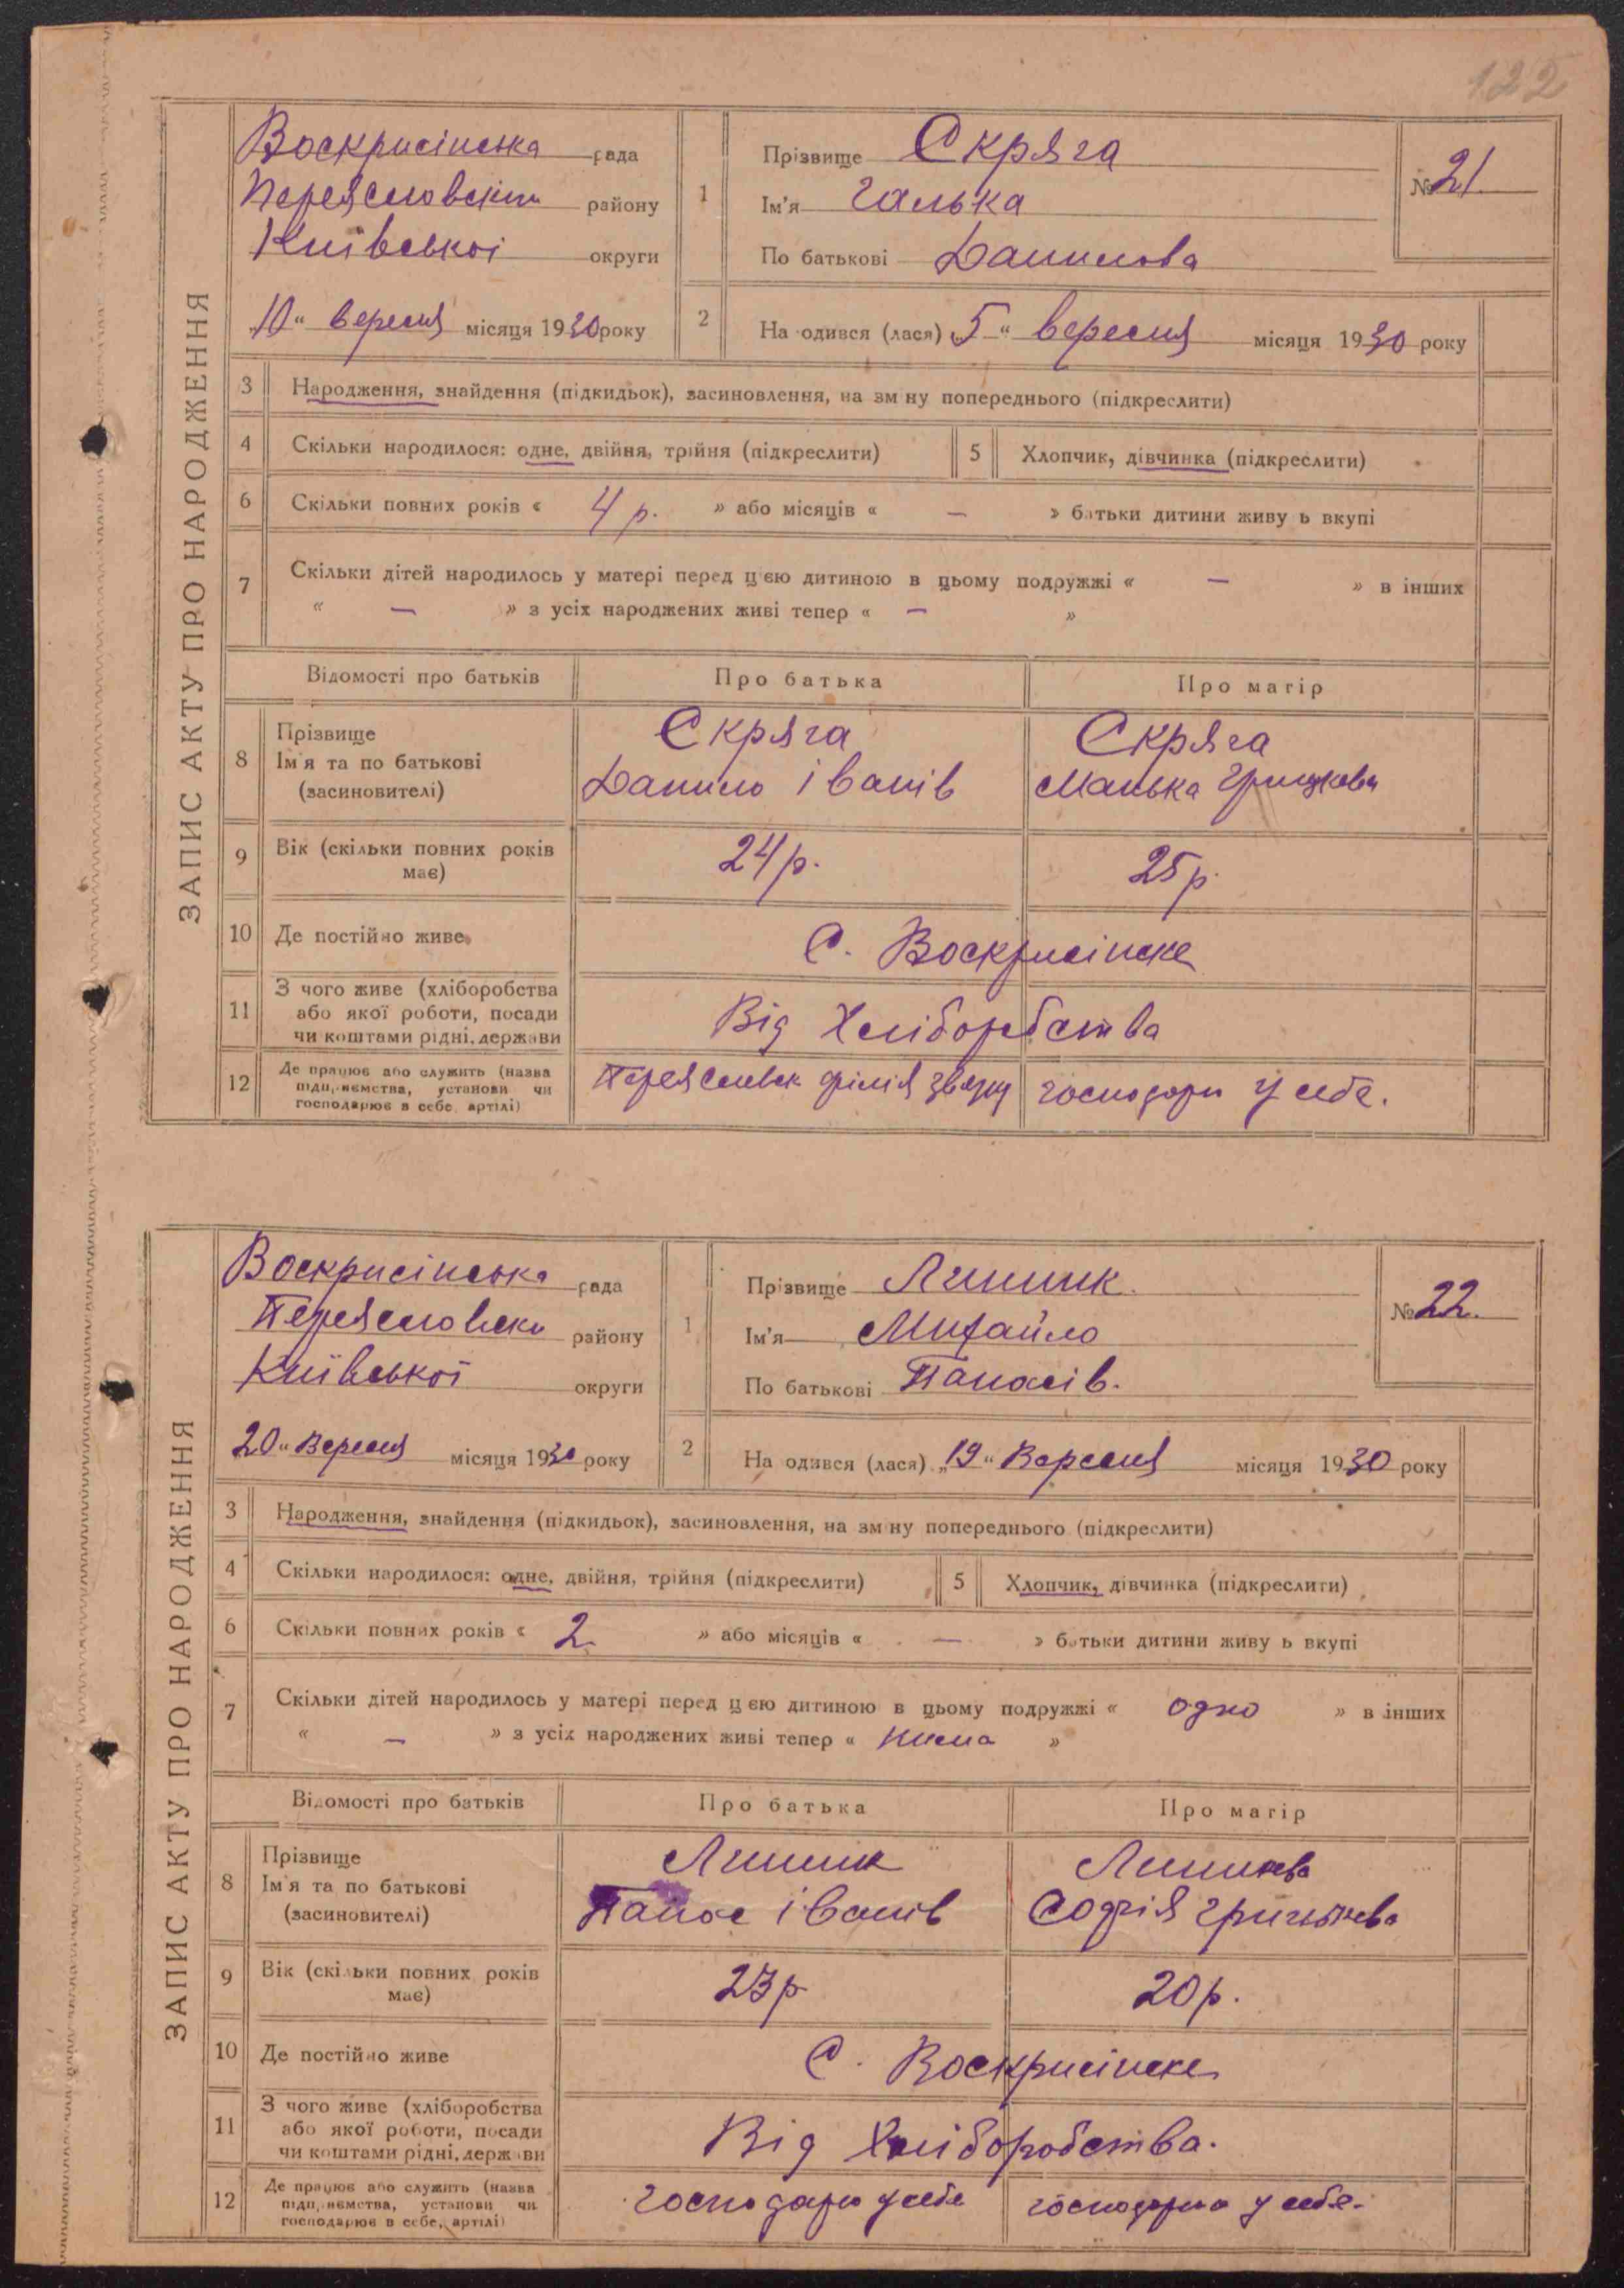 122
ЗАПИС АКТУ ПРО НАРОДЖЕННЯ
Воскрисінська рада
Переяславськ району
Київської округи
„10“ вересня місяця 1930 року
1
Прізвище Скряга
Ім'я Галька
По батькові Данилова
№ 21.
2
На одився (лася) „5“ вересня місяця 1930 року
3 Народження, знайдення (підкидьок), засиновлення, на зм ну попереднього (підкреслити)
4 Скільки народилося: одне, двійня, трійня (підкреслити) 5 Хлопчик, дівчинка (підкреслити)
6 Скільки повних років « 4 р. » або місяців « — » батьки дитини живу ь вкупі
7 Скільки дітей народилось у матері перед цією дитиною в цьому подружжі « — » в інших
« — » з усіх народжених живі тепер « — »
Відомості про батьків Про батька Про матір
8 Прізвище
Ім'я та по батькові
(засиновителі)
Скряга
Данило Іванів
Скряга
Манька Грицкова
9 Вік (скільки повних років має) 24 р. 25 р.
10 Де постійно живе С. Воскрисінске
11 З чого живе (хліборобства
або якої роботи, посади
чи коштами рідні, держави
Від Хліборобства
12 Де працює або служить (назва
підприємства, установи чи
господарює в себе, артілі)
Переяславск філія звязку господари у себе.
ЗАПИС АКТУ ПРО НАРОДЖЕННЯ
Воскрисінська рада
Переяславски району
Київської округи
20“ Вересня місяця 1930 року
1
Прізвище Линник.
Ім'я Михайло
По батькові Панасів.
№ 22.
2
На одився (лася) „19“ Вересня місяця 1930 року
3 Народження, знайдення (підкидьок), засиновлення, на зм ну попереднього (підкреслити)
4 Скільки народилося: одне, двійня, трійня (підкреслити) 5 Хлопчик, дівчинка (підкреслити)
6 Скільки повних років « 2. » або місяців « — » батьки дитини живу ь вкупі
7 Скільки дітей народилось у матері перед цією дитиною в цьому подружжі « одно » в інших
« — » з усіх народжених живі тепер « нима »
Відомості про батьків Про батька Про матір
8 Прізвище
Ім'я та по батькові
(засиновителі)
Линник
Панас Іванів
Линникова
Софія Грицькова
9 Вік (скільки повних років має) 23 р 20 р.
10 Де постійно живе С. Воскрисінске
11 З чого живе (хліборобства
або якої роботи, посади
чи коштами рідні, держави
Від Хліборобства.
12 Де працює або служить (назва
підприємства, установи чи
господарює в себе, артілі)
господарю у себе господарка у себе.